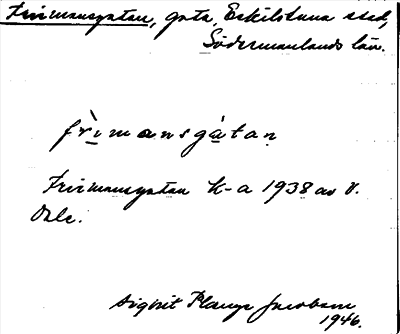 Frirmansgatan, gata, Eskilstuna stad,
Södermanlands län.
frìmansgàtan
Frirmansgatan k-a 1938 av V.
Ohls.
Sigbrit Plange Jacobson
1946.